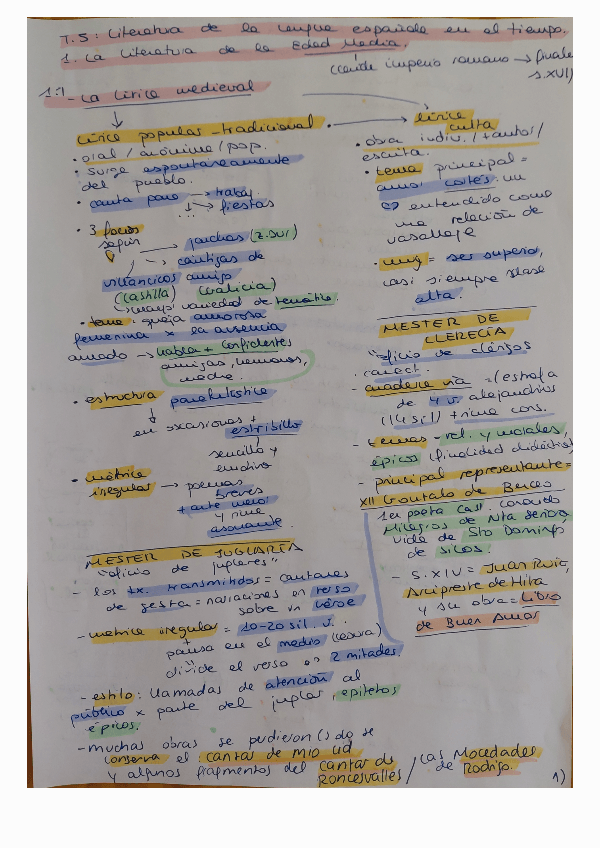 T.5: Literatura de la lengua española en el tiempo.
1. La literatura de la Edad Media.
(desde imperio romano → finales
s.XVI)
1.1 - La lírica medieval
lírica popular-tradicional
• oral / anónima / pop.
• surge espontáneamente
del pueblo.
• canta para → trabaj.
→ fiestas
...
• 3 focos
según
→ jarchas (z.sur)
→ cantigas de
amigo
villancicos
(Castilla) (Galicia)
↳ mayor variedad de temática.
• tema: queja amorosa
femenina x la ausencia
amado → habla + confidentes
amigas, hermanas,
madre.
• estructura paralelística
↓
en ocasiones +
estribillo
↓
sencillo y
emotivo
• métrica
irregular → poemas
breves
+ arte menor
y rima
asonante.
MESTER DE JUGLARÍA
"oficio de juglares"
- los tx. transmitidos = cantares
de gesta = narraciones en verso
sobre un héroe
- métrica irregular = 10-20 síl. v.
+
pausa en el medio (cesura)
divide el verso en 2 mitades.
- estilo: llamadas de atención al
público x parte del juglar, epítetos
épicos.
- muchas obras se perdieron, solo se
conserva el: cantar de mio Cid
y algunos fragmentos del Cantar de
Roncesvalles / Las Mocedades
de Rodrigo.
lírica
culta
• obra indiv. / + autor /
escrita.
• tema principal =
amor cortés: un
♡ entendido como
una relación de
vasallaje
• muj = ser superior,
casi siempre clase
alta.
MESTER DE
CLERECÍA
"oficio de clérigos
• caract.
- cuaderna vía = (estrofa
de 4 v. alejandrinos
(14 síl) + rima cons.
- temas - rel. y morales
épicos (finalidad didáctica)
- principal representante =
XII Gonzalo de Berceo
1er poeta cast. conocido
Milagros de Nta señora,
vida de Sto Domingo
de Silos.
- S.XIV = Juan Ruiz,
Arcipreste de Hita
y su obra = Libro
de Buen Amor
1)